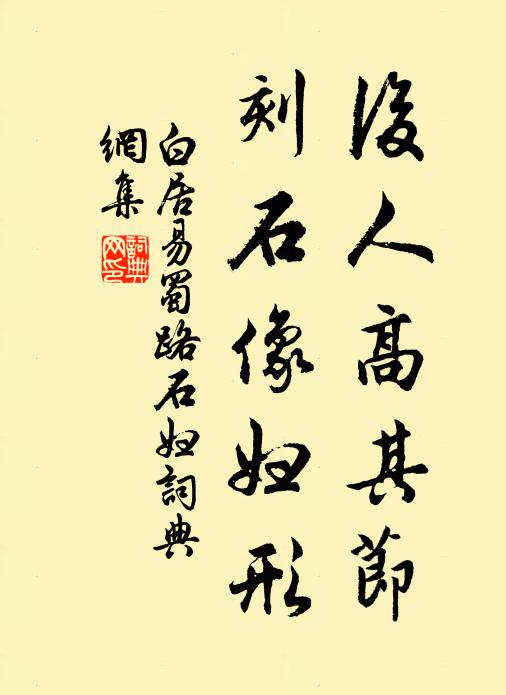 後人高其節
刻石像妇形
白居易蜀路石妇詞典
網集
詞典
网印